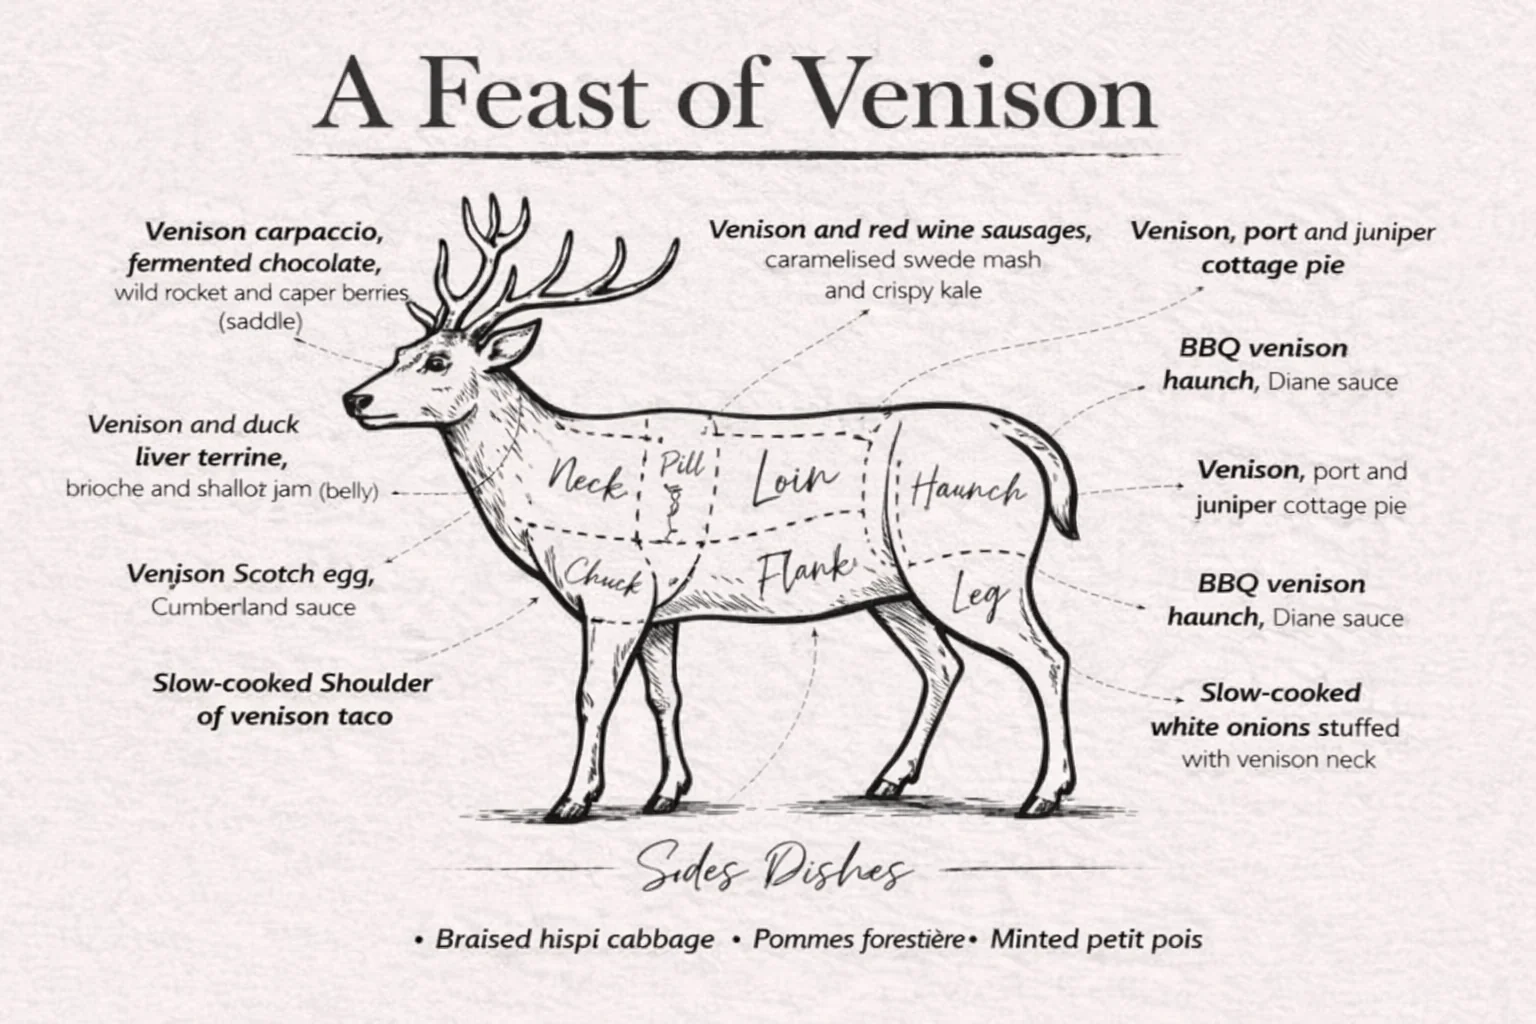 A Feast of Venison
Venison carpaccio,
fermented chocolate,
wild rocket and caper berries
(saddle)
Venison and red wine sausages,
caramelised swede mash
and crispy kale
Venison, port and juniper
cottage pie
BBQ venison
haunch, Diane sauce
Venison and duck
liver terrine,
brioche and shallot jam (belly)
Venison, port and
juniper cottage pie
Venison Scotch egg,
Cumberland sauce
BBQ venison
haunch, Diane sauce
Slow-cooked Shoulder
of venison taco
Slow-cooked
white onions stuffed
with venison neck
Neck
Pill
Loin
Haunch
Chuck
Flank
Leg
Sides Dishes
• Braised hispi cabbage • Pommes forestière • Minted petit pois